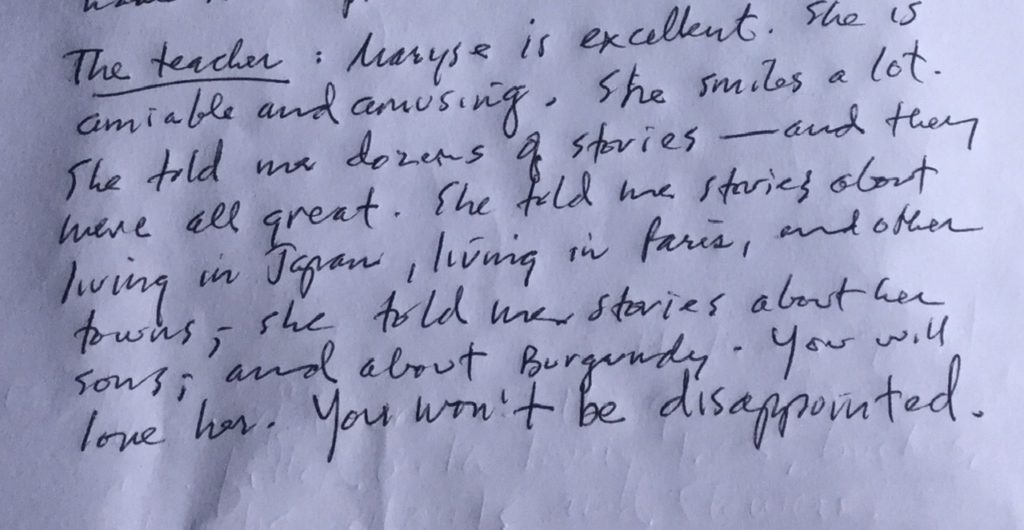 The teacher : Maryse is excellent. She is
amiable and amusing. She smiles a lot.
She told me dozens of stories — and they
were all great. She told me stories about
living in Japan, living in Paris, and other
towns; she told me stories about her
sons; and about Burgundy. You will
love her. You won't be disappointed.